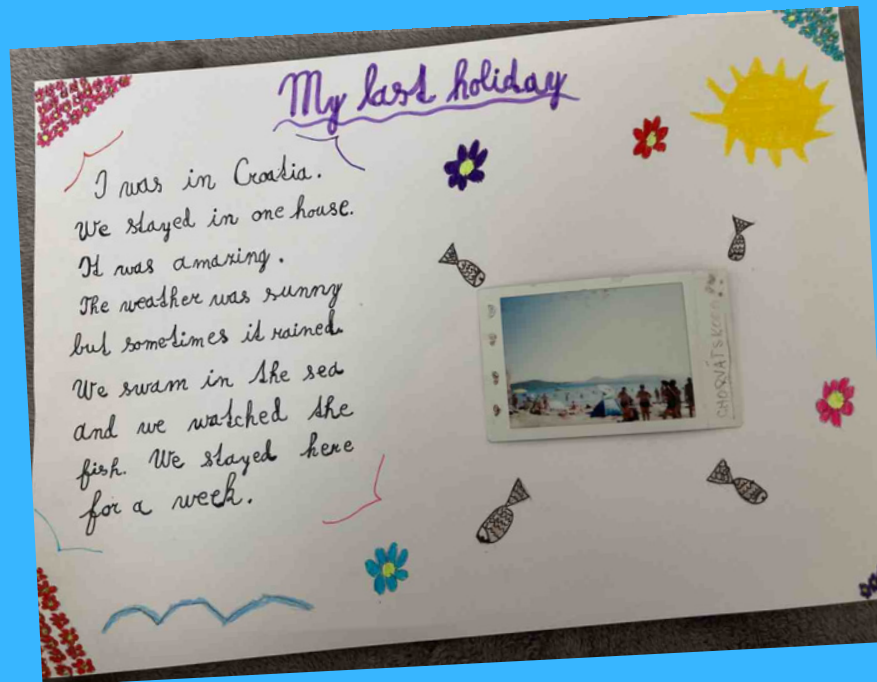 My last holiday
I was in Croatia.
We stayed in one house.
It was amazing.
The weather was sunny
but sometimes it rained.
We swam in the sea
and we watched the
fish. We stayed here
for a week.
CHORVÁTSKO